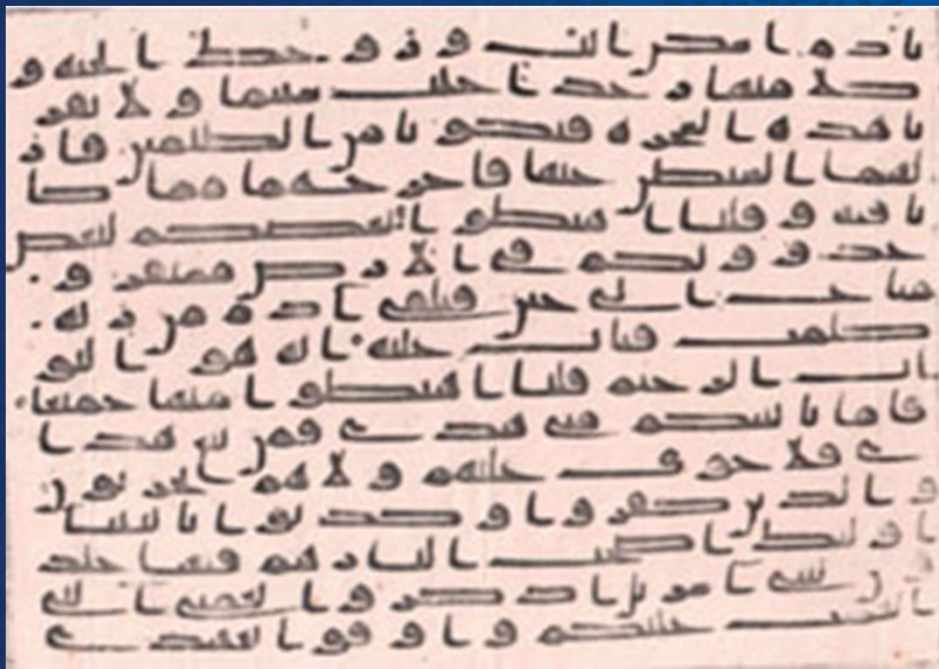 يادم اسكن انت و زوجك الجنه و
كلا منها رغدا حيث شيتما و لا تقر
با هذه الشجره فتكونا من الظلمين فاز
لهما الشيطن عنها فاخرجهما مما كا
نا فيه و قلنا اهبطوا بعضكم لبعض
عدو و لكم في الارض مستقر و
متاع الي حين فتلقي ادم من ربه
كلمت فتاب عليه انه هو التو
اب الرحيم قلنا اهبطوا منها جميعا
فاما ياتينكم مني هدي فمن تبع هدا
ي فلا خوف عليهم و لا هم يحزنون
و الذين كفروا و كذبوا بايتنا
اوليك اصحب النار هم فيها خلد
ون يبني اسريل اذكروا نعمتي التي
انعمت عليكم و اوفوا بعهدي